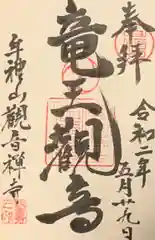 奉拝
令和二年
五月廿九日
竜王觀音
神山觀音禅寺